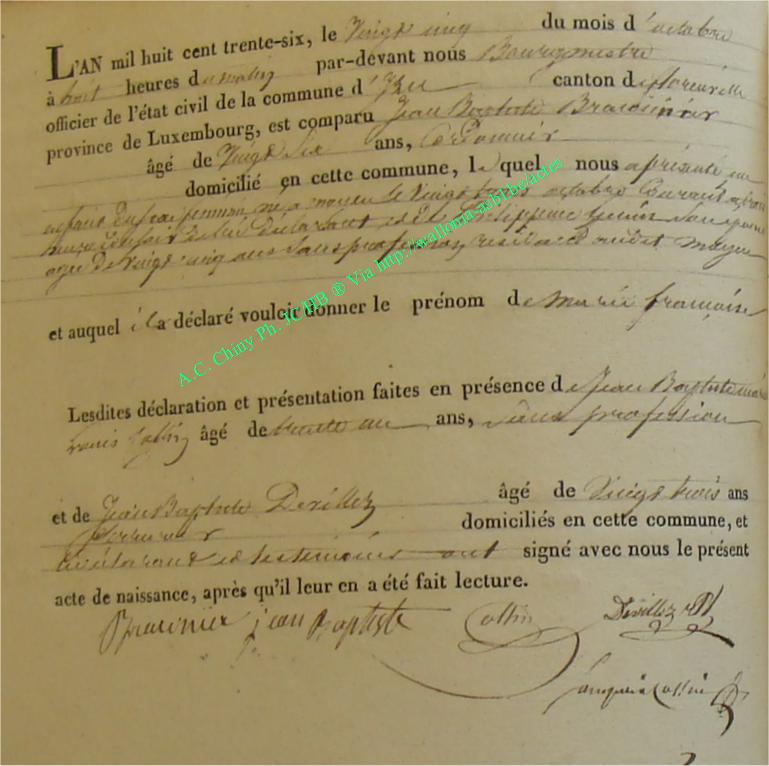 L'AN mil huit cent trente-six, le Vingt cinq du mois d'octobre
à huit heures du matin par-devant nous Bourgmestre
officier de l'état civil de la commune d'Izel canton de florenville
province de Luxembourg, est comparu Jean Baptiste Braconnier
âgé de Vingt Six ans, Cordonnier
domicilié en cette commune, lequel nous a présenté un
enfant du sexe feminin, né a moyen le Vingt trois octobre Courant
du déclarant et de philippine son épouse
agée de vingt cinq ans Sans profession, audit moyen
et auquel il a déclaré vouloir donner le prénom de marie françoise
A.C. Chiny Ph. JCHB ® Via http://wallonia-asbl.be/actes
Lesdites déclaration et présentation faites en présence de Jean Baptiste
Louis Collin âgé de trente un ans, Sans profession
et de Jean Baptiste Devillez âgé de Vingt trois ans
Serrurier domiciliés en cette commune, et
déclarant et les témoins ont signé avec nous le présent
acte de naissance, après qu'il leur en a été fait lecture.
jean Baptiste Collin Devillez